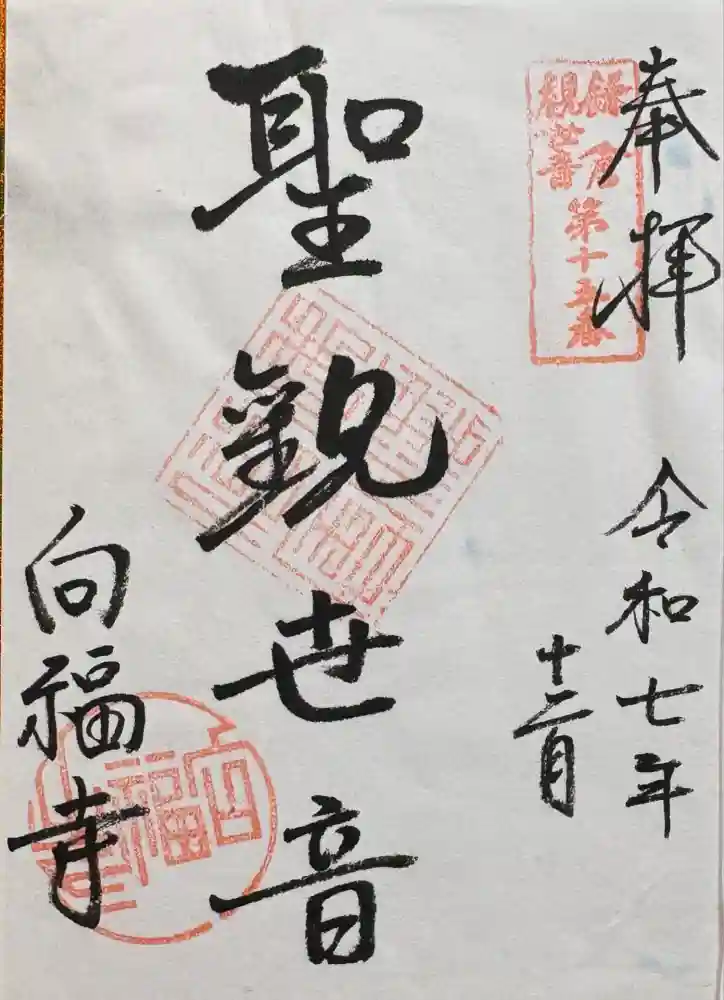 奉拝
鎌倉
観世音
第十五番
令和七年
十二月
聖観世音
向福寺
向福寺